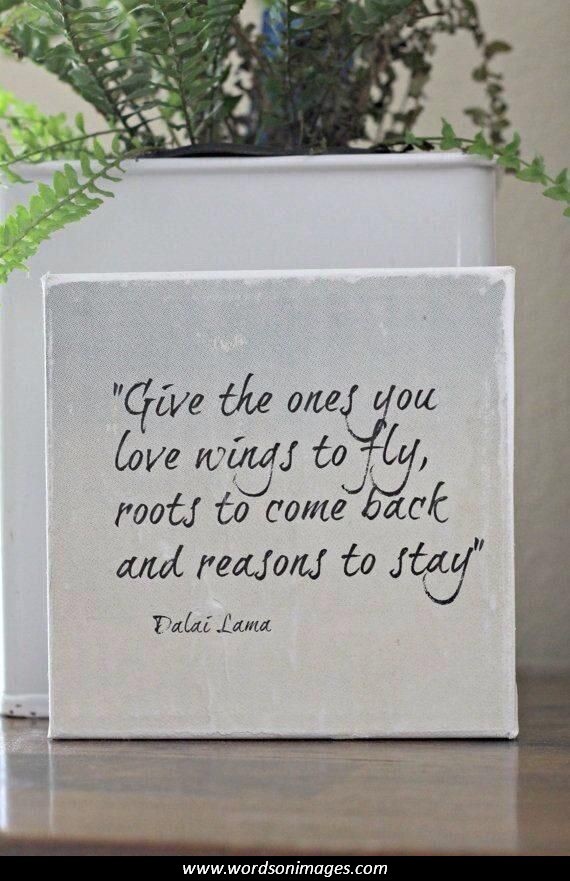 "Give the ones you
love wings to fly,
roots to come back
and reasons to stay"
Dalai Lama
www.wordsonimages.com